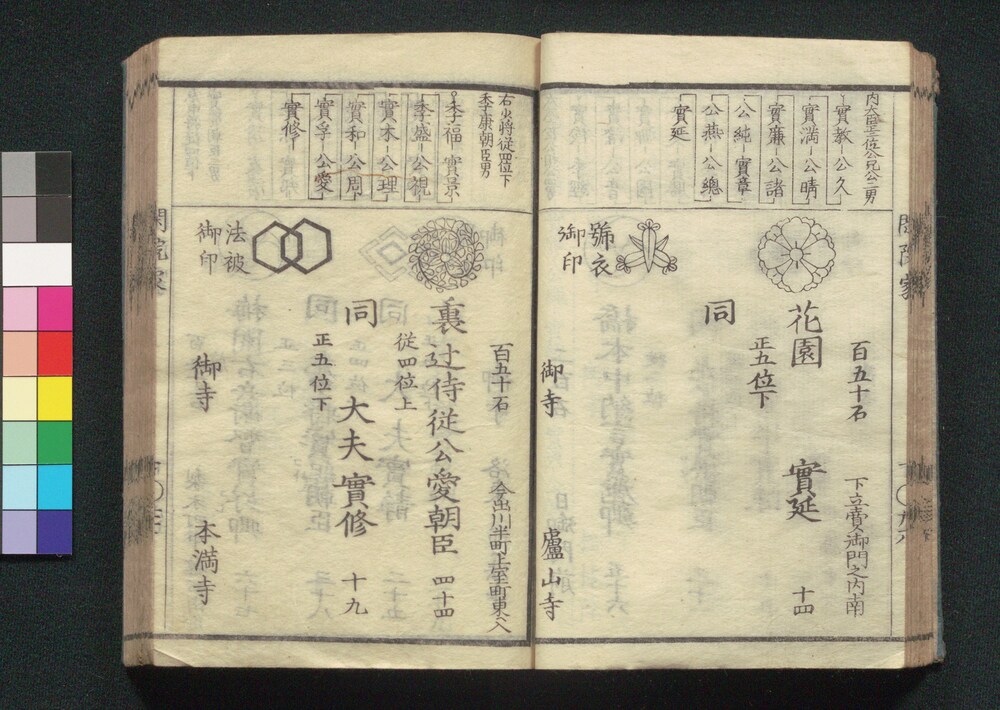 實教 公久
實満 公晴
實廉 公諸
公純 實章
公燕 公總
實延
花園
百五十石
下立賣御門之内南
正五位下
實延
十四
同
號衣
御印
御寺
盧山寺
右少将従四位下
季康朝臣男
季福 實景
季盛 公視
實本 公理
實和 公周
實孚 公愛
實修
百五十石
今出川半町上室町東入
裏辻侍従公愛朝臣
四十四
従四位上
同
大夫實修
十九
正五位下
法被
御印
御寺
本満寺